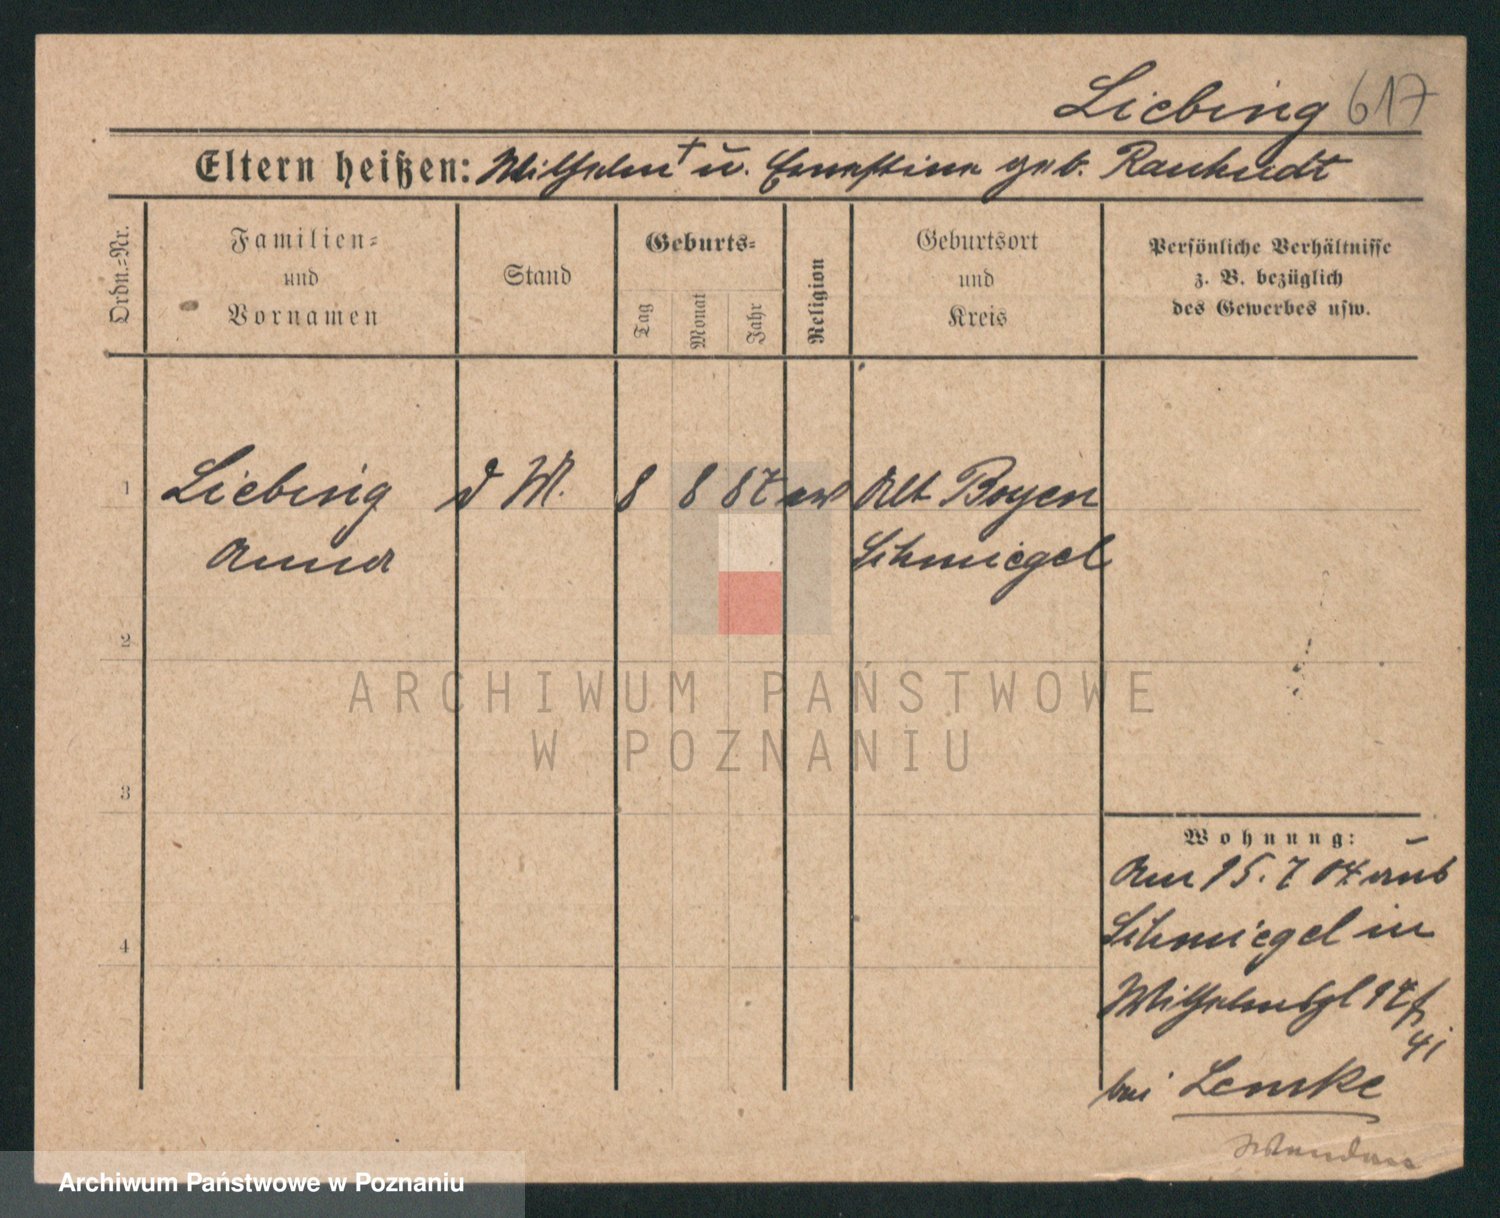 Liebing 617
Eltern heißen: Wilhelm † u. Ernestine geb. Rauhudt
Ordn.-Nr.
Familien-
und
Vornamen
Stand
Geburts-
Tag
Monat
Jahr
Religion
Geburtsort
und
Kreis
Persönliche Verhältnisse
z. B. bezüglich
des Gewerbes usw.
1 Liebing d M. 8 8 87 ev Alt Boyen
Anna Schmiegel
2
3
4
ARCHIWUM PAŃSTWOWE
W POZNANIU
Wohnung:
Am 15. 7 04 aus
Schmiegel in
Wilhelmspl 17
bei Lemke
Archiwum Państwowe w Poznaniu